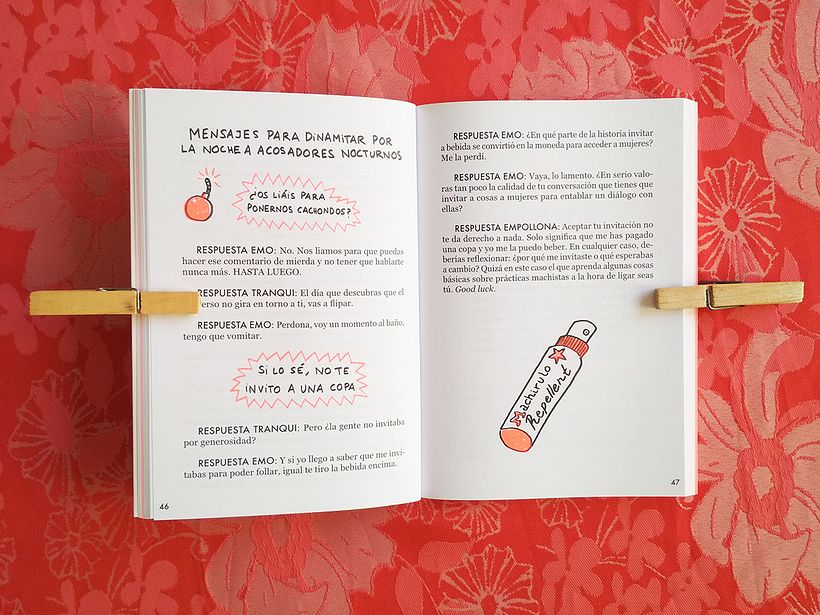 MENSAJES PARA DINAMITAR POR
LA NOCHE A ACOSADORES NOCTURNOS
¿OS LIÁIS PARA
PONERNOS CACHONDOS?
RESPUESTA EMO: No. Nos liamos para que puedas
hacer ese comentario de mierda y no tener que hablarte
nunca más. HASTA LUEGO.
RESPUESTA TRANQUI: El día que descubras que el
verso no gira en torno a ti, vas a flipar.
RESPUESTA EMO: Perdona, voy un momento al baño,
tengo que vomitar.
SI LO SÉ, NO TE
INVITO A UNA COPA
RESPUESTA TRANQUI: Pero ¿la gente no invitaba
por generosidad?
RESPUESTA EMO: Y si yo llego a saber que me invi-
tabas para poder follar, igual te tiro la bebida encima.
46
RESPUESTA EMO: ¿En qué parte de la historia invitar
a bebida se convirtió en la moneda para acceder a mujeres?
Me la perdí.
RESPUESTA EMO: Vaya, lo lamento. ¿En serio valo-
ras tan poco la calidad de tu conversación que tienes que
invitar a cosas a mujeres para entablar un diálogo con
ellas?
RESPUESTA EMPOLLONA: Aceptar tu invitación no
te da derecho a nada. Solo significa que me has pagado
una copa y yo me la puedo beber. En cualquier caso, de-
berías reflexionar: ¿por qué me invitaste o qué esperabas
a cambio? Quizá en este caso el que aprenda algunas cosas
básicas sobre prácticas machistas a la hora de ligar seas
tú. Good luck.
Machirulo
Repellent
47